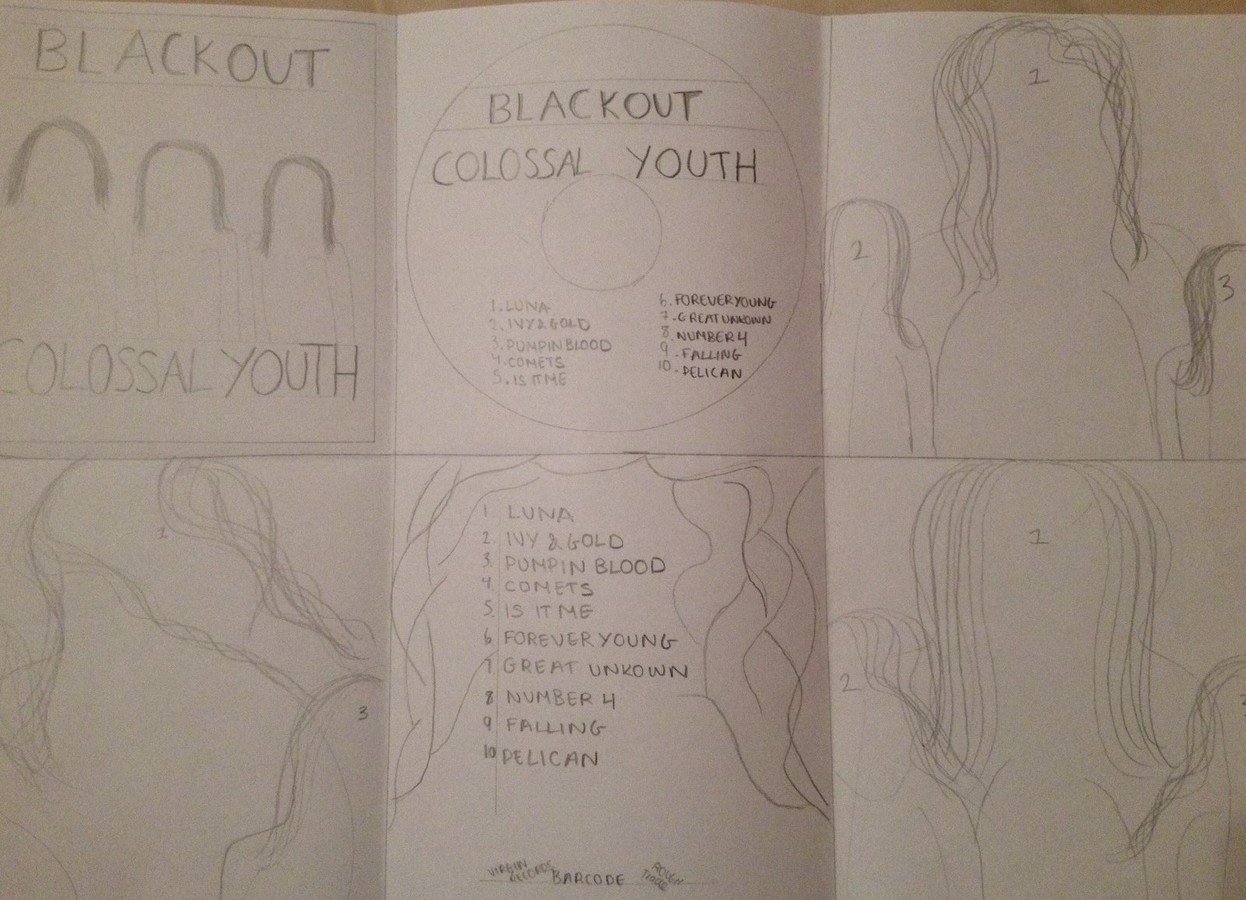 BLACKOUT
COLOSSAL YOUTH
BLACKOUT
COLOSSAL YOUTH
1. LUNA
2. IVY & GOLD
3. PUMPIN BLOOD
4. COMETS
5. IS IT ME
6. FOREVER YOUNG
7. GREAT UNKOWN
8. NUMBER 4
9. FALLING
10. PELICAN
1
2
3
1
3
1. LUNA
2. IVY & GOLD
3. PUMPIN BLOOD
4 COMETS
5. IS IT ME
6 FOREVER YOUNG
7 GREAT UNKOWN
8 NUMBER 4
9 FALLING
10 PELICAN
VIRGIN
RECORDS
BARCODE
ROUGH
TRADE
1
2